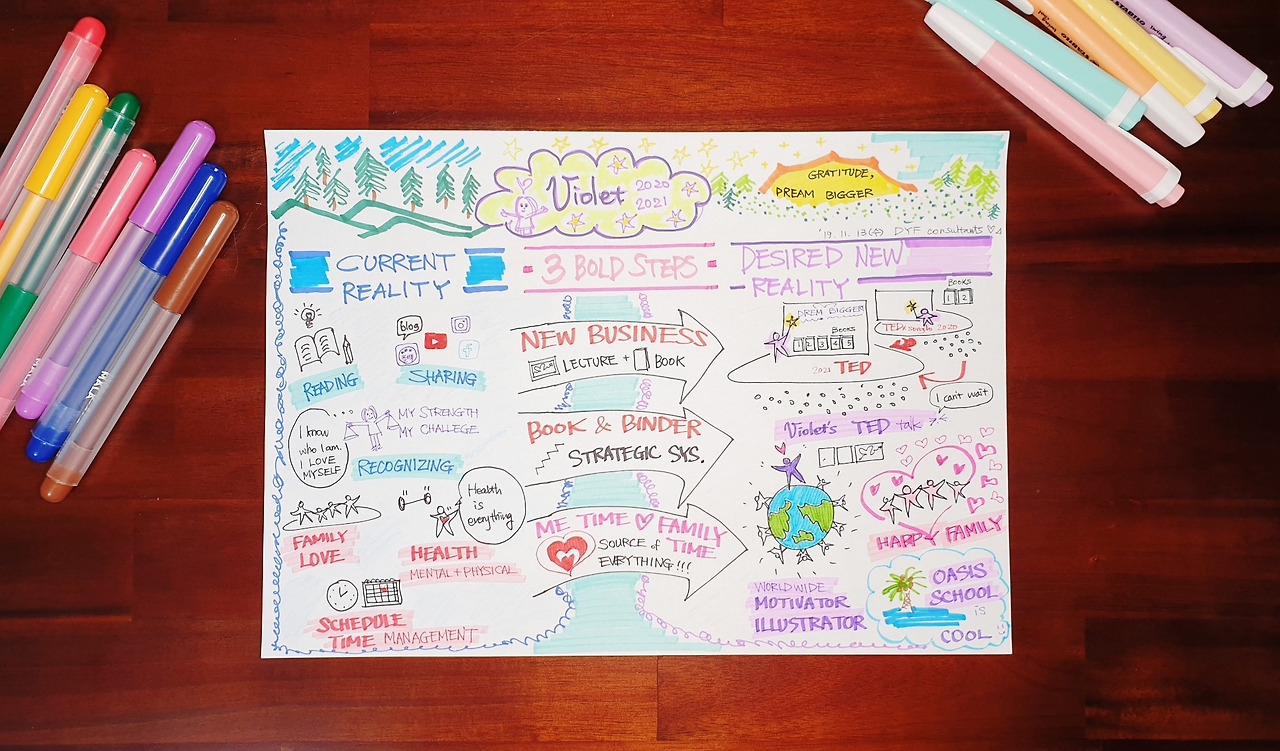 Violet 2020
2021
GRATITUDE,
DREAM BIGGER
'19. 11. 13(수) DYF consultants
CURRENT
REALITY
READING
blog
SHARING
I know
who I am.
I LOVE
MYSELF
MY STRENGTH
MY CHALLEGE
RECOGNIZING
FAMILY
LOVE
Health
is
everything
HEALTH
MENTAL + PHYSICAL
SCHEDULE
TIME MANAGEMENT
3 BOLD STEPS
NEW BUSINESS
LECTURE + BOOK
BOOK & BINDER
STRATEGIC SYS.
ME TIME ♡ FAMILY
TIME
SOURCE of
EVERYTHING!!!
DESIRED NEW
REALITY
DREM BIGGER
BOOKS
1 2 3 4 5
2021 TED
BOOKS
1 2
2020
I can't wait
Violet's TED talk
HAPPY FAMILY
WORLDWIDE
MOTIVATOR
ILLUSTRATOR
OASIS
SCHOOL
is
COOL
STABILO
STABILO